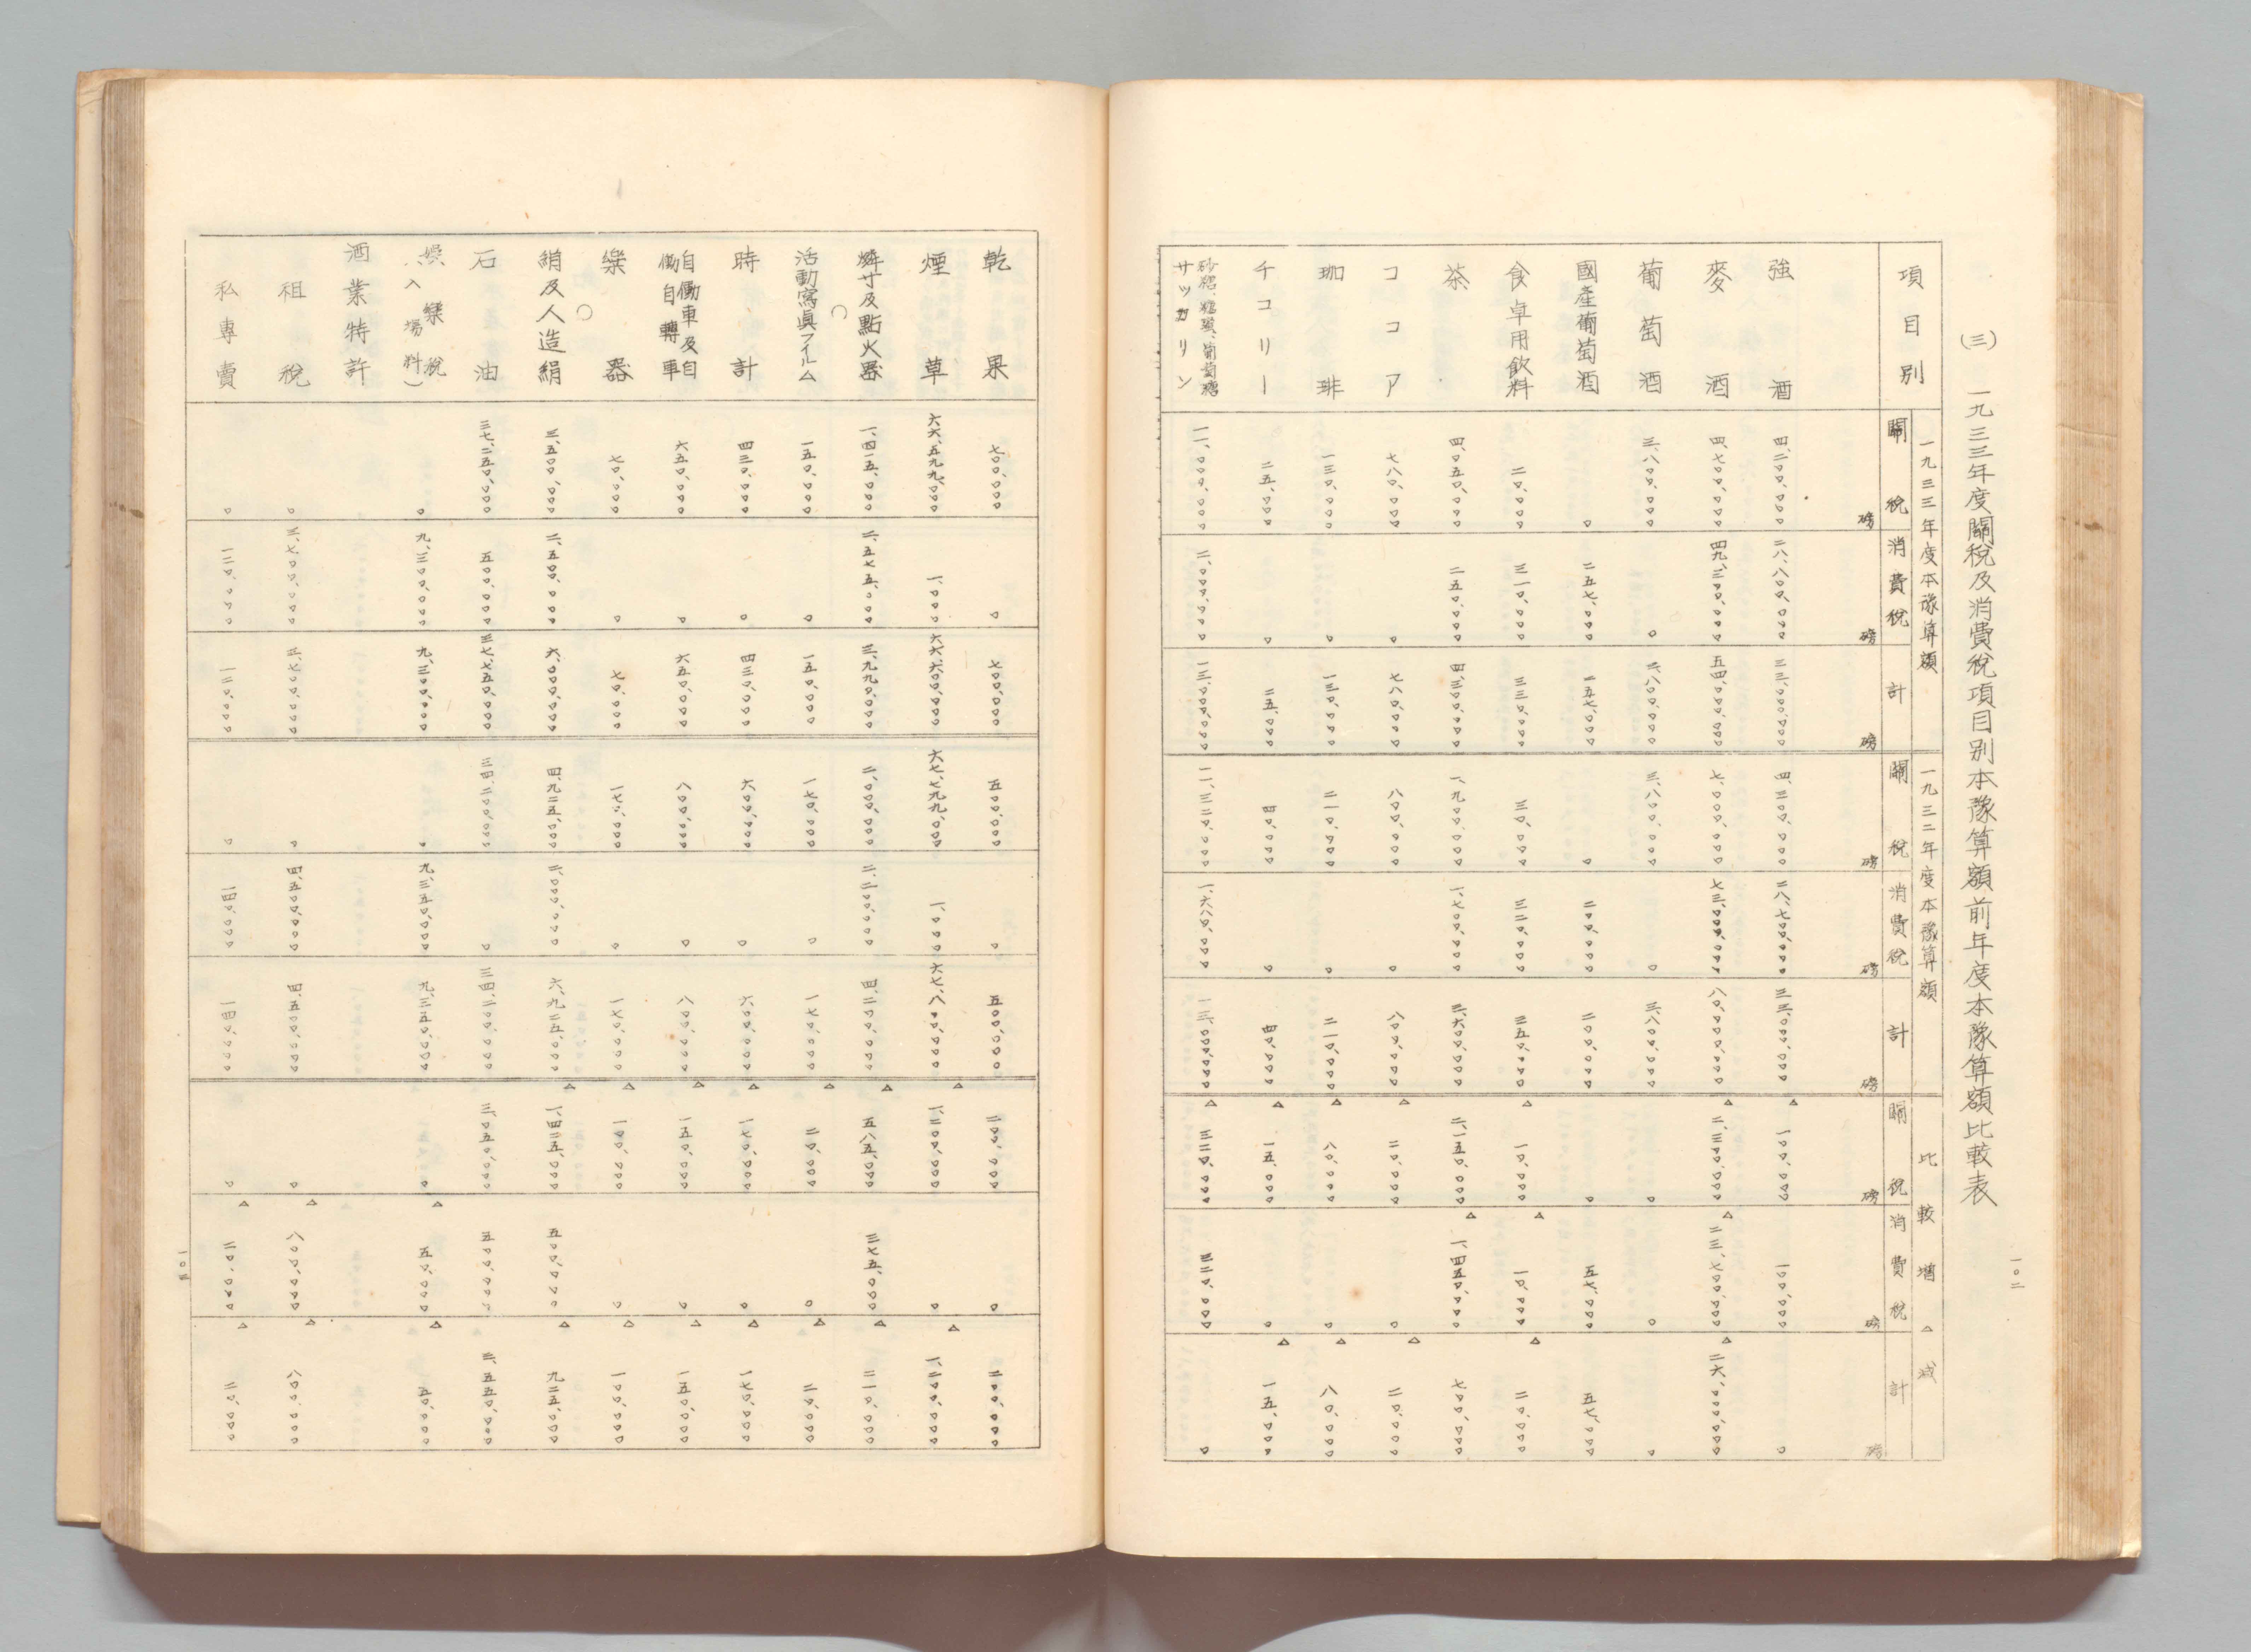 一〇二
(三) 一九三三年度關稅及消費稅項目別本豫算額前年度本豫算額比較表
項目別 一九三三年度本豫算額 一九三二年度本豫算額 比較增△減
關稅 消費稅 計 關稅 消費稅 計 關稅 消費稅 計
磅 磅 磅 磅 磅 磅 磅 磅 磅
強酒 四、二〇〇、〇〇〇 二八、八〇〇、〇〇〇 三三、〇〇〇、〇〇〇 四、三〇〇、〇〇〇 二八、七〇〇、〇〇〇 三三、〇〇〇、〇〇〇 △一〇〇、〇〇〇 一〇〇、〇〇〇 〇
麥酒 四、七〇〇、〇〇〇 四九、三〇〇、〇〇〇 五四、〇〇〇、〇〇〇 七、〇〇〇、〇〇〇 七三、〇〇〇、〇〇〇 八〇、〇〇〇、〇〇〇 △二、三〇〇、〇〇〇 △二三、七〇〇、〇〇〇 △二六、〇〇〇、〇〇〇
葡萄酒 三、八〇〇、〇〇〇 〇 三、八〇〇、〇〇〇 三、八〇〇、〇〇〇 〇 三、八〇〇、〇〇〇 〇 〇 〇
國產葡萄酒 〇 二五七、〇〇〇 二五七、〇〇〇 〇 二〇〇、〇〇〇 二〇〇、〇〇〇 〇 五七、〇〇〇 五七、〇〇〇
食卓用飲料 二〇、〇〇〇 三一〇、〇〇〇 三三〇、〇〇〇 三〇、〇〇〇 三二〇、〇〇〇 三五〇、〇〇〇 △一〇、〇〇〇 △一〇、〇〇〇 △二〇、〇〇〇
茶 四、〇五〇、〇〇〇 二五〇、〇〇〇 四、三〇〇、〇〇〇 一、九〇〇、〇〇〇 一、七〇〇、〇〇〇 三、六〇〇、〇〇〇 二、一五〇、〇〇〇 △一、四五〇、〇〇〇 七〇〇、〇〇〇
ココア 七八〇、〇〇〇 〇 七八〇、〇〇〇 八〇〇、〇〇〇 〇 八〇〇、〇〇〇 △二〇、〇〇〇 〇 △二〇、〇〇〇
珈琲 一三〇、〇〇〇 〇 一三〇、〇〇〇 二一〇、〇〇〇 〇 二一〇、〇〇〇 △八〇、〇〇〇 〇 △八〇、〇〇〇
チコリー 二五、〇〇〇 〇 二五、〇〇〇 四〇、〇〇〇 〇 四〇、〇〇〇 △一五、〇〇〇 〇 △一五、〇〇〇
砂糖、糖蜜、葡萄糖
サッカリン 一一、〇〇〇、〇〇〇 二、〇〇〇、〇〇〇 一三、〇〇〇、〇〇〇 一一、三二〇、〇〇〇 一、六八〇、〇〇〇 一三、〇〇〇、〇〇〇 △三二〇、〇〇〇 三二〇、〇〇〇 〇
乾果 七〇〇、〇〇〇 〇 七〇〇、〇〇〇 五〇〇、〇〇〇 〇 五〇〇、〇〇〇 二〇〇、〇〇〇 〇 二〇〇、〇〇〇
煙草 六六、五九九、〇〇〇 一、〇〇〇 六六、六〇〇、〇〇〇 六七、七九九、〇〇〇 一、〇〇〇 六七、八〇〇、〇〇〇 △一、二〇〇、〇〇〇 〇 △一、二〇〇、〇〇〇
燐寸及點火器 一、四一五、〇〇〇 二、五七五、〇〇〇 三、九九〇、〇〇〇 二、〇〇〇、〇〇〇 二、二〇〇、〇〇〇 四、二〇〇、〇〇〇 △五八五、〇〇〇 三七五、〇〇〇 △二一〇、〇〇〇
活動寫眞フイルム 一五〇、〇〇〇 〇 一五〇、〇〇〇 一七〇、〇〇〇 〇 一七〇、〇〇〇 △二〇、〇〇〇 〇 △二〇、〇〇〇
時計 四三〇、〇〇〇 〇 四三〇、〇〇〇 六〇〇、〇〇〇 〇 六〇〇、〇〇〇 △一七〇、〇〇〇 〇 △一七〇、〇〇〇
自働車及自
働自轉車 六五〇、〇〇〇 〇 六五〇、〇〇〇 八〇〇、〇〇〇 〇 八〇〇、〇〇〇 △一五〇、〇〇〇 〇 △一五〇、〇〇〇
樂器 七〇、〇〇〇 〇 七〇、〇〇〇 一七〇、〇〇〇 〇 一七〇、〇〇〇 △一〇〇、〇〇〇 〇 △一〇〇、〇〇〇
絹及人造絹 三、五〇〇、〇〇〇 二、五〇〇、〇〇〇 六、〇〇〇、〇〇〇 四、九二五、〇〇〇 二、〇〇〇、〇〇〇 六、九二五、〇〇〇 △一、四二五、〇〇〇 五〇〇、〇〇〇 △九二五、〇〇〇
石油 三七、二五〇、〇〇〇 五〇〇、〇〇〇 三七、七五〇、〇〇〇 三四、二〇〇、〇〇〇 〇 三四、二〇〇、〇〇〇 三、〇五〇、〇〇〇 五〇〇、〇〇〇 三、五五〇、〇〇〇
娛樂稅
(入場料) 〇 九、三〇〇、〇〇〇 九、三〇〇、〇〇〇 〇 九、三五〇、〇〇〇 九、三五〇、〇〇〇 〇 △五〇、〇〇〇 △五〇、〇〇〇
酒業特許
租稅 〇 三、七〇〇、〇〇〇 三、七〇〇、〇〇〇 〇 四、五〇〇、〇〇〇 四、五〇〇、〇〇〇 〇 △八〇〇、〇〇〇 △八〇〇、〇〇〇
私專賣 〇 一二〇、〇〇〇 一二〇、〇〇〇 〇 一四〇、〇〇〇 一四〇、〇〇〇 〇 △二〇、〇〇〇 △二〇、〇〇〇
一〇三